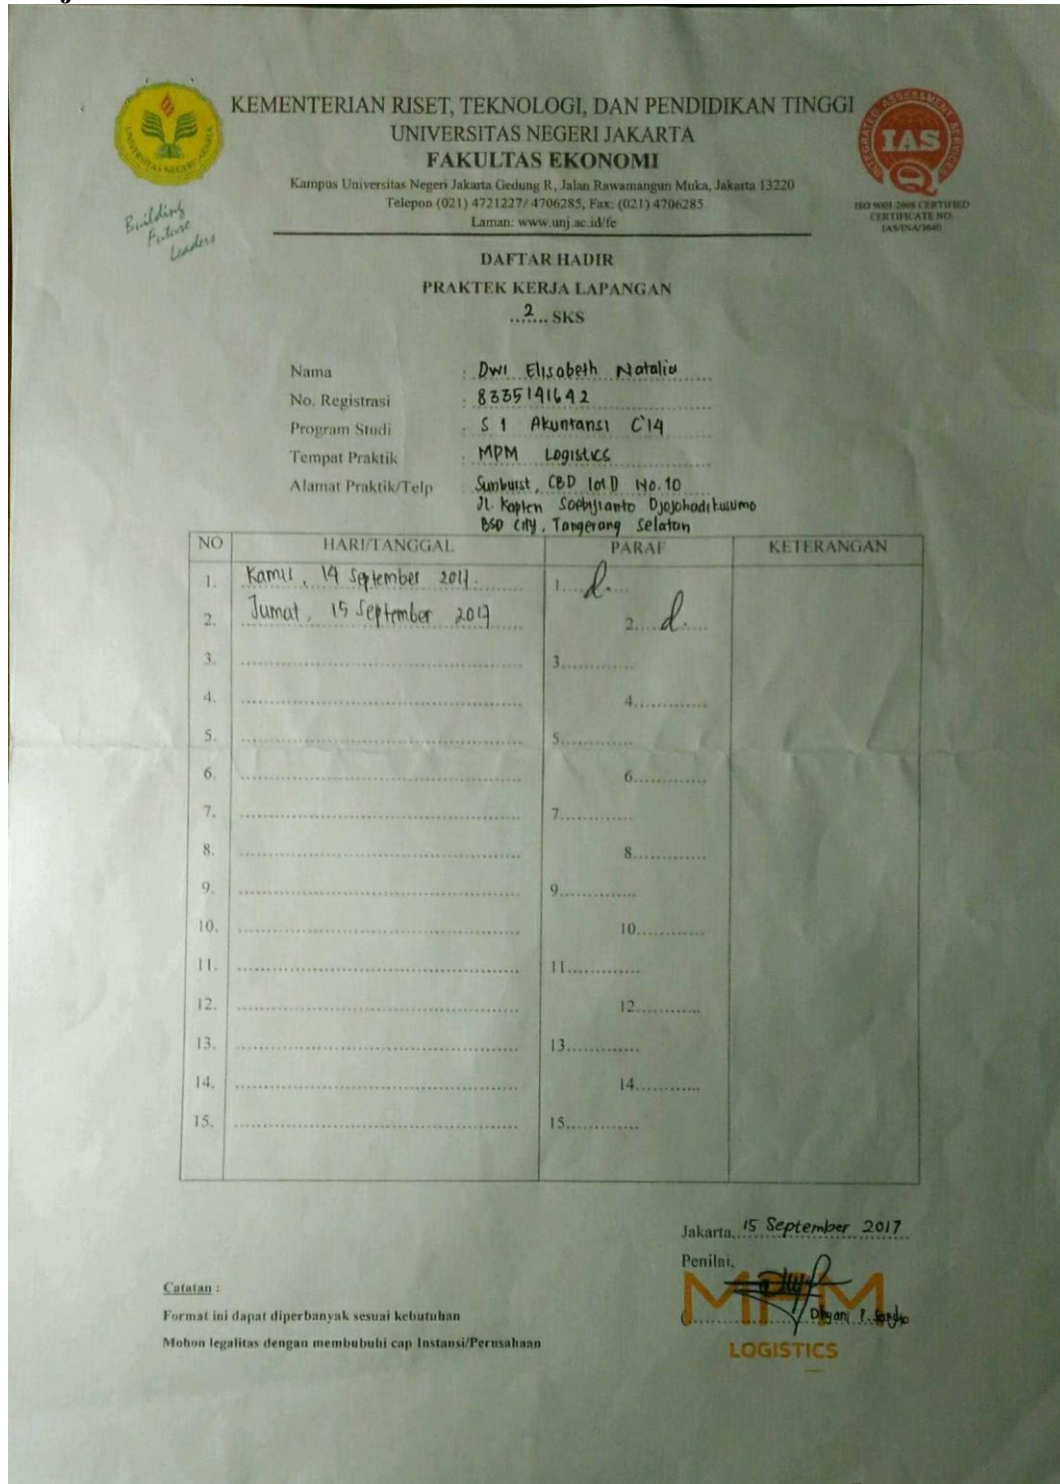 KEMENTERIAN RISET, TEKNOLOGI, DAN PENDIDIKAN TINGGI
UNIVERSITAS NEGERI JAKARTA
FAKULTAS EKONOMI
Kampus Universitas Negeri Jakarta Gedung R, Jalan Rawamangun Muka, Jakarta 13220
Telepon (021) 4721227/ 4706285, Fax: (021) 4706285
Laman: www.unj.ac.id/fe
UNIVERSITAS NEGERI JAKARTA
Building
Future
Leaders
INTEGRATED ASSESSMENT SERVICES
IAS
Q
ISO 9001:2008 CERTIFIED
CERTIFICATE NO.
IAS/INA/3640
DAFTAR HADIR
PRAKTEK KERJA LAPANGAN
...2... SKS
Nama : Dwi Elisabeth Natalia
No. Registrasi : 8335141642
Program Studi : S1 Akuntansi C'14
Tempat Praktik : MPM Logistics
Alamat Praktik/Telp : Sunburst, CBD lot D No. 10
Jl. Kapten Djojohadikusumo
BSD City, Tangerang Selatan
NO HARI/TANGGAL PARAF KETERANGAN
1. Kamis, 14 September 2017 1. d.
2. Jumat, 15 September 2017 2. d.
3. 3.
4. 4.
5. 5.
6. 6.
7. 7.
8. 8.
9. 9.
10. 10.
11. 11.
12. 12.
13. 13.
14. 14.
15. 15.
Jakarta, 15 September 2017
Penilai,
MPM
LOGISTICS
Catatan :
Format ini dapat diperbanyak sesuai kebutuhan
Mohon legalitas dengan membubuhi cap Instansi/Perusahaan